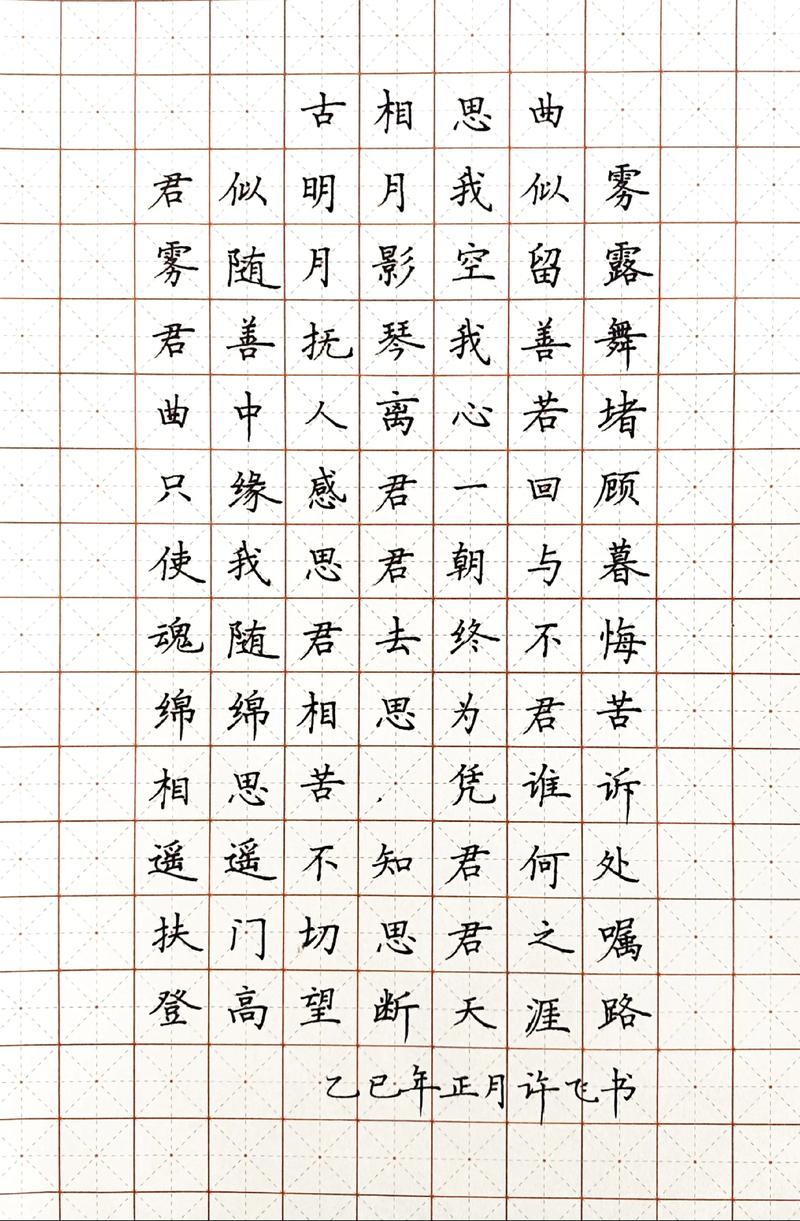 古相思曲
君似明月我似雾
雾随月影空留露
君善抚琴我善舞
曲中人离心若堵
只缘感君一回顾
使我思君朝与暮
魂随君去终不悔
绵绵相思为君苦
相思苦.凭谁诉
遥遥不知君何处
扶门切思君之嘱
登高望断天涯路
乙巳年正月许飞书